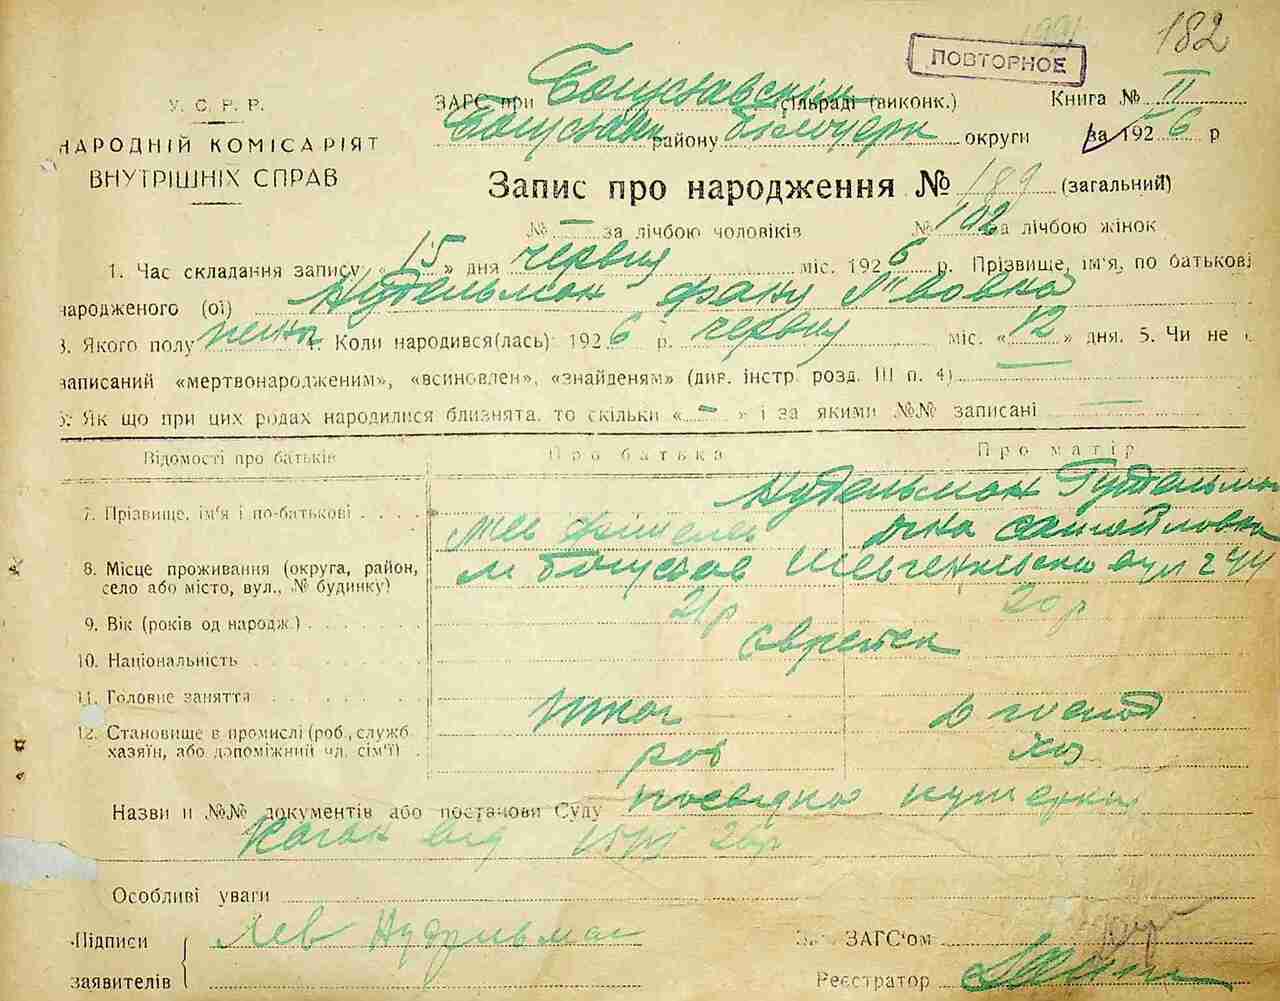 182
ПОВТОРНОЕ
У. С. Р. Р.
НАРОДНІЙ КОМІСАРІЯТ
ВНУТРІШНІХ СПРАВ
ЗАГС при Богуславскім сільраді (виконк.) Книга № II
Богуслав району білоцерк округи за 1926 р
Запис про народження № 189 (загальний)
№ — за лічбою чоловіків № 102 за лічбою жінок
1. Час складання запису « 15 » дня червня міс. 1926 р. Прізвище, ім'я, по батькові
народженого (ої) Нудельман Фаня Львовна
3. Якого полу жіноч 4. Коли народився(лась) 1926 р. червня міс. « 12 » дня. 5. Чи не є
записаний «мертвонародженим», «всиновлен», «знайденям» (див. інстр. розд. III п. 4)
6. Як що при цих родах народилися близнята, то скільки « – » і за якими №№ записані —
Відомості про батьків Про батька Про матір
7. Прізвище, ім'я і по-батькові Нудельман
Лев самойловна
8. Місце проживання (округа, район,
село або місто, вул., № будинку)
м Богуслав Шевченківська вул
9. Вік (років од народж.) 21р 20р
10. Національність євреї
11. Головне заняття ткач д господ
12. Становище в промислі (роб., служб.
хазяїн, або допоміжний чл. сім'ї) роб хоз
Назви и №№ документів або постанови Суду посвідка
Коган від 26р
Особливі уваги
Підписи
заявителів
Лев Нудельман
Зав. ЗАГС'ом
Реєстратор